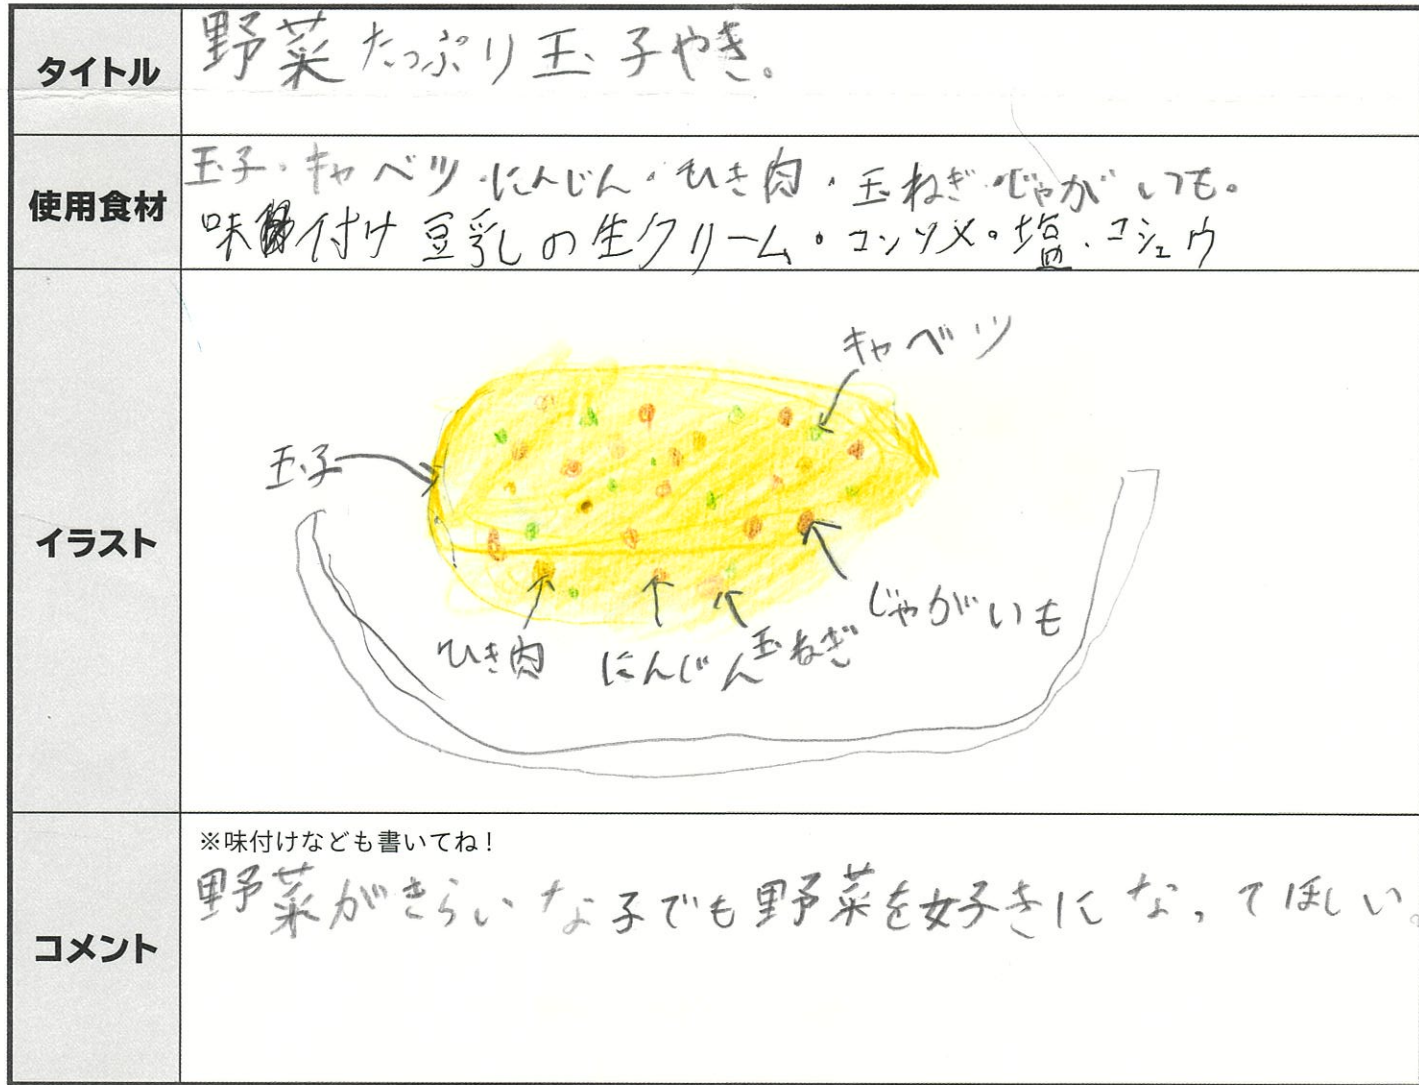 タイトル
野菜たっぷり玉子やき。
使用食材
玉子・キャベツ・にんじん・ひき肉・玉ねぎ・じゃがいも。
味付け豆乳しの生クリーム・コンソメ。塩、コショウ
イラスト
キャベツ
玉子
じゃがいも
ひき肉
にんじん
玉ねぎ
コメント
※味付けなども書いてね!
野菜がきらいな子でも野菜を好きになってほしい。